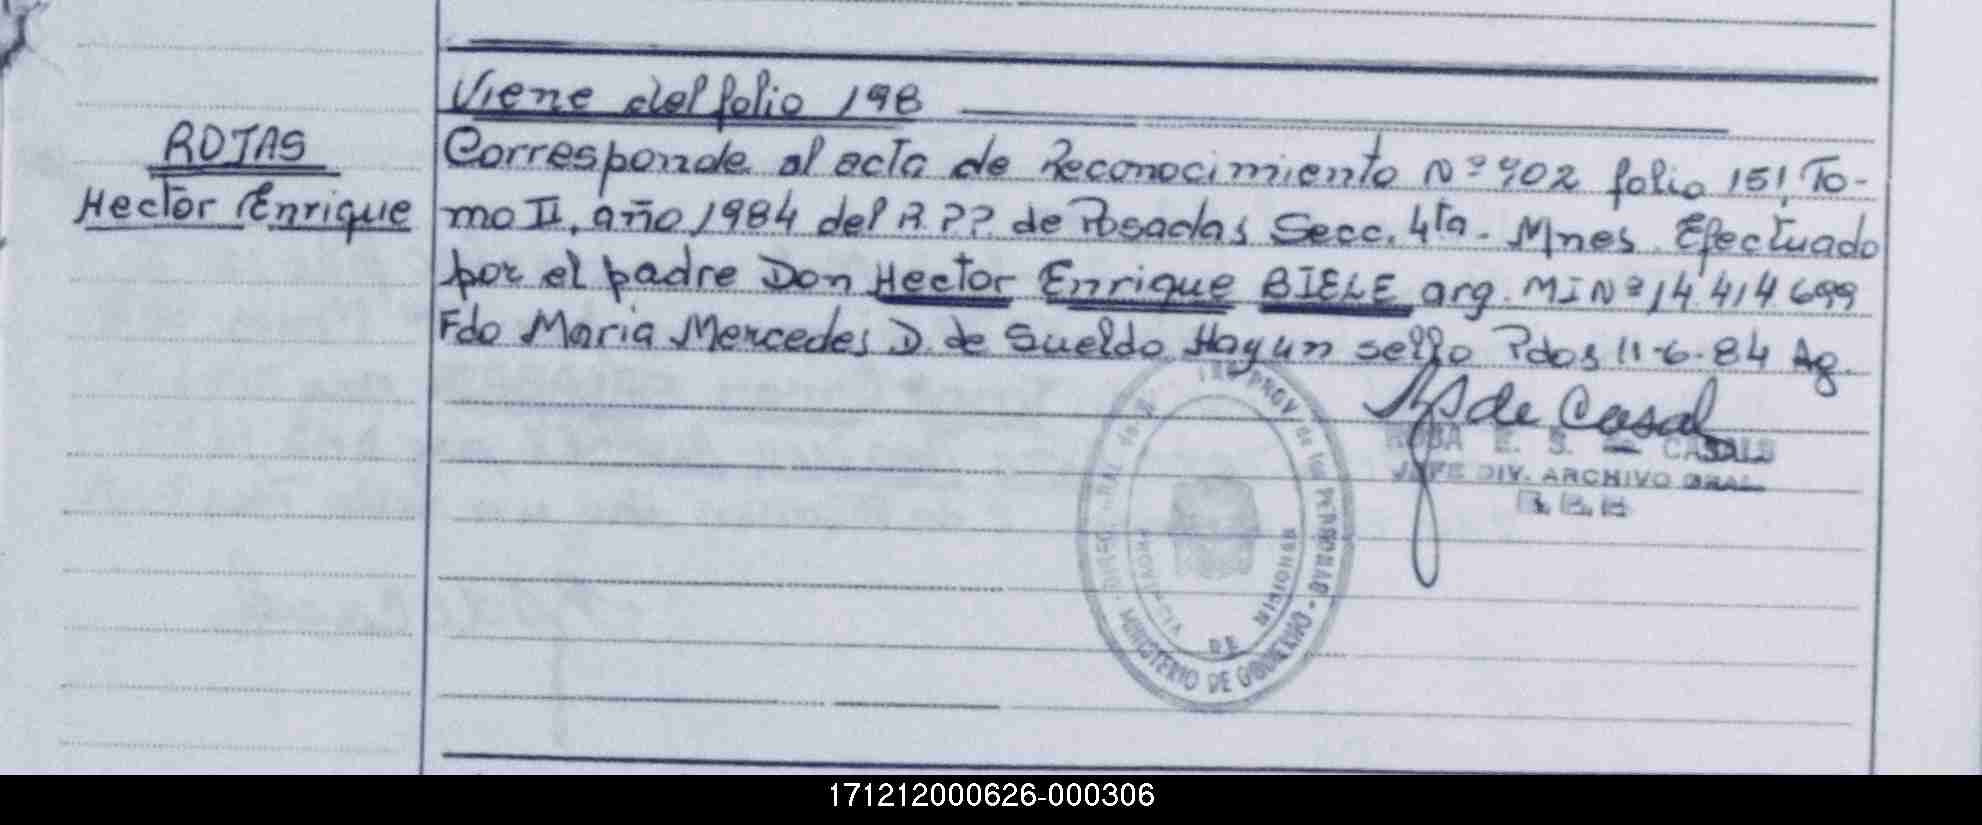 Viene del folio 198
ROJAS
Hector Enrique
Corresponde al acta de Reconocimiento Nº 402 folio 151, To-
mo II, año 1984 del R.P.P. de Posadas Secc. 4ta. Mnes. Efectuado
por el padre Don Hector Enrique BIELE arg. MI Nº 14.414.699
Fdo Maria Mercedes D. de Sueldo Hay un sello Pdas 11-6-84 Ag.
de Casal
E. S. CASALS
JEFE DIV. ARCHIVO GRAL
PROV. de las PERSONAS - MINISTERIO DE GOBIERNO
PROVINCIA DE MISIONES
171212000626-000306